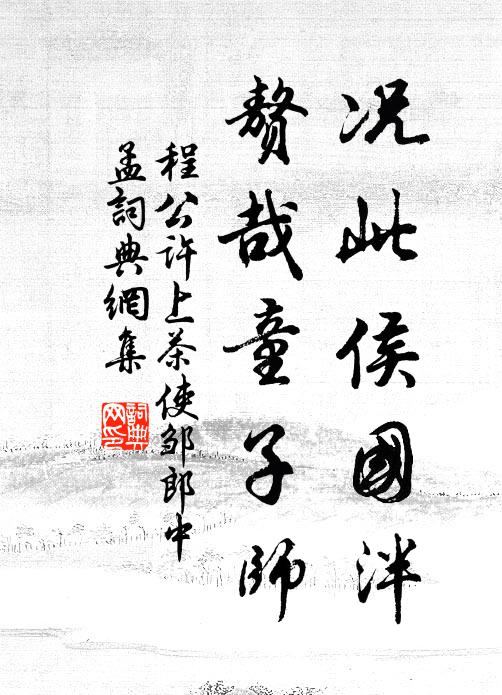 况此侯國泮
贅哉童子師
程公許上茶使邹郎中
孟詞典網集
詞典網印